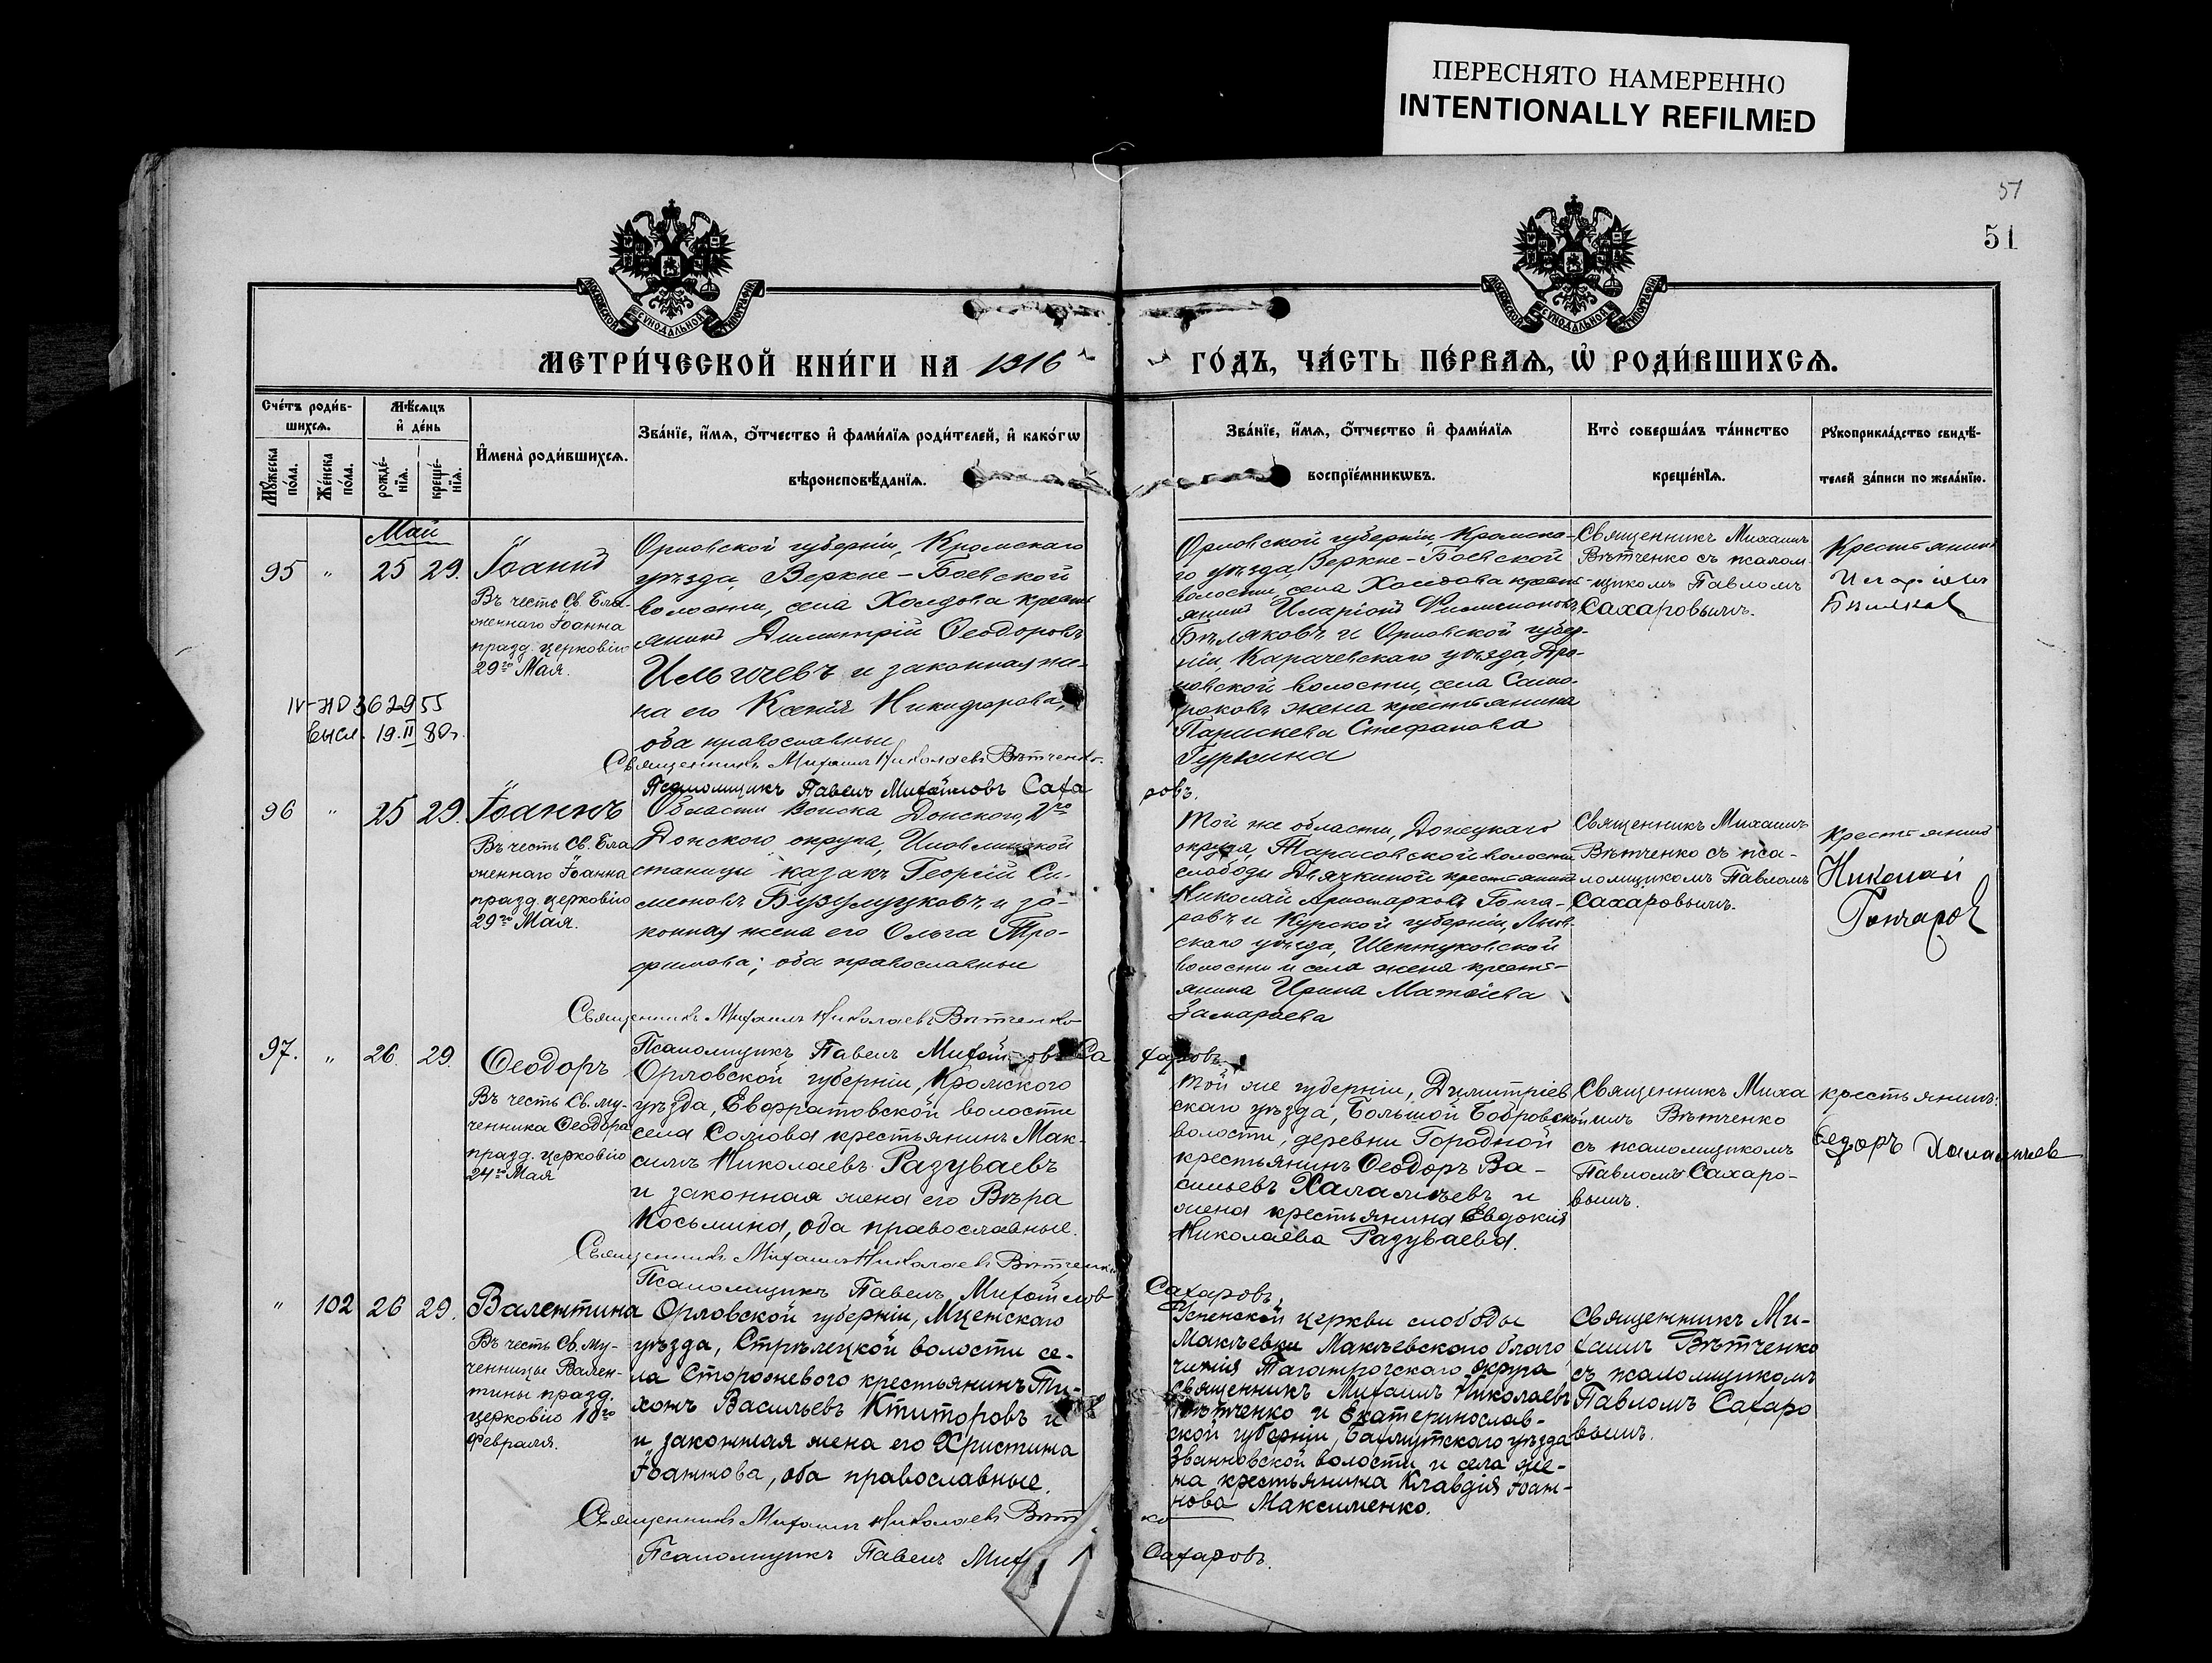 ПЕРЕСНЯТО НАМЕРЕННО
INTENTIONALLY REFILMED
57
51
МОСКОВСКОЙ СѴНОДАЛЬНОЙ ТИПОГРАФІИ
МОСКОВСКОЙ СѴНОДАЛЬНОЙ ТИПОГРАФІИ
МЕТРИ́ЧЕСКОЙ КНИ́ГИ НА 1916
ГО́ДЪ, ЧА́СТЬ ПЕ́РВАѦ, Ѡ҆ РОДИ́ВШИХСѦ.
Сче́тъ роди́в-
шихсѧ.
Мѣ́сѧцъ
и҆ де́нь
Мꙋ́жеска по́ла.
Же́нска по́ла.
рожде́-
нїѧ.
креще́-
нїѧ.
И҆мена̀ роди́вшихсѧ.
Зва́нїе, и҆́мѧ, ѻ҆́тчество и҆ фами́лїѧ роди́телей, и҆ како́гѡ
вѣроисповѣ́данїѧ.
Зва́нїе, и҆́мѧ, ѻ҆́тчество и҆ фами́лїѧ
воспрїе́мникѡвъ.
Кто̀ соверша́лъ та́инство
креще́нїѧ.
Рꙋкоприкла́дство свидѣ́-
телей за́писи по жела́нїю.
Май
95 " 25 29. Іоаннъ
Въ честь Св. Бла-
женнаго Іоанна
празд. церковію
29го Мая.
IV-НО 362955
Высл. 19.II 80г.
Орловской губерніи, Кромскаго
уѣзда, Верхне-Боевской
волости, села Холдова кресть
янинъ Димитрій Ѳеодоровъ
Ильичевъ и законная же-
на его Ксенія Никифорова,
оба православные
Священникъ Михаилъ Николаевъ Вѣтченко.
Псаломщикъ Павелъ Михайловъ Саха
ровъ.
Орловской губерніи, Кромска-
го уѣзда, Верхне-Боевской
волости, села Холдова кресть-
янинъ Иларіонъ
Бѣляковъ и Орловской губер-
ніи, Карачевскаго уѣзда, Дро-
новской волости, села
жена крестьянина
Параскева Стефанова
Гуркина
Священникъ Михаилъ
Вѣтченко съ псалом-
щикомъ Павломъ
Сахаровымъ.
Крестьянинъ
Иларіонъ
96 " 25 29. Іоаннъ
Въ честь Св. Бла
женнаго Іоанна
празд. церковію
29го Мая.
Области Войска Донского, 2го
Донского округа, Иловлинской
станицы казакъ Георгій Си-
меоновъ Бузулуцковъ и за-
конная жена его Ольга Тро-
фимова; оба православные
Священникъ Михаилъ Николаевъ Вѣтченко
Псаломщикъ Павелъ Михайловъ Са
харовъ.
Той же области, Донецкаго
округа, Тарасовской волости
слободы Дячкиной крестьянинъ
Николай Аристарховъ Гонча-
ровъ и Курской губерніи, Льгов-
скаго уѣзда, Шептуховской
волости и села жена кресть-
янина Ирина Матвіева
Замараева
Священникъ Михаилъ
Вѣтченко съ пса-
ломщикомъ Павломъ
Сахаровымъ.
Крестьянинъ
Николай
Гончаров
97. " 26. 29. Ѳеодоръ
Въ честь Св. му-
ченника Ѳеодора
празд. церковію
24го Мая
Орловской губерніи, Кромского
уѣзда, Евфратовской волости
села Сомова крестьянинъ Мак-
симъ Николаевъ Разуваевъ
и законная жена его Вѣра
Косьмина, оба православные.
Священникъ Михаилъ Николаевъ Вѣтченко
Псаломщикъ Павелъ Михайлов
Сахаровъ.
Той же губерніи, Думитріев
скаго уѣзда, Большой Бобровской
волости, деревни Городной
крестьянинъ Ѳеодоръ Ва-
сильевъ Халамѣевъ и
жена крестьянина Евдокія
Николаева Разуваева.
Священникъ Миха
илъ Вѣтченко
съ псаломщикомъ
Павломъ Сахаро-
вымъ.
крестьянинъ
Федоръ
" 102 26 29. Валентина
Въ честь Св. му-
ченницы Вален-
тины празд.
церковію 10го
Февраля.
Орловской губерніи, Мценскаго
уѣзда, Стрѣлецкой волости се-
ла Сторожевого крестьянинъ Ти-
хонъ Васильевъ Ктиторовъ и
и законная жена его Христина
Іоаннова, оба православные.
Священникъ Михаилъ Николаевъ Вѣт
ко
Псаломщикъ Павелъ Мих
Сахаровъ.
Успенской церкви слободы
Макѣевки Макѣевскаго благо
чинія Таганрогскаго округа
Священникъ Михаилъ Николаевъ
Вѣтченко и Екатеринослав-
ской губерніи, Бахмутскаго уѣзда
Званновской волости и села же-
на крестьянина Клавдія Іоан-
нова Максименко.
Священникъ Ми-
хаилъ Вѣтченко
съ псаломщикомъ
Павломъ Сахаро
вымъ.